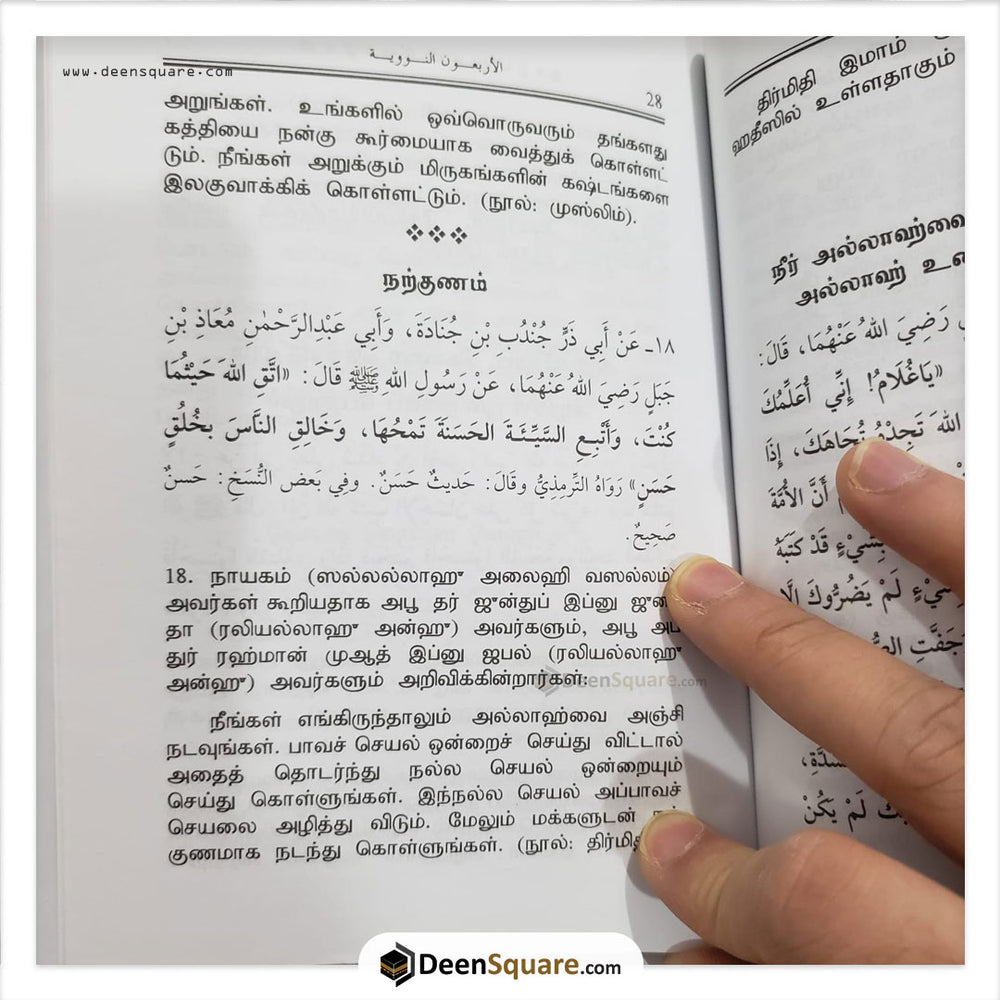 www.deensquare.com
الأربعون النووية
28
அறுங்கள். உங்களில் ஒவ்வொருவரும் தங்களது
கத்தியை நன்கு கூர்மையாக வைத்துக் கொள்ளட்
டும். நீங்கள் அறுக்கும் மிருகங்களின் கஷ்டங்களை
இலகுவாக்கிக் கொள்ளட்டும். (நூல்: முஸ்லிம்).
நற்குணம்
١٨ـ عَنْ أَبِي ذَرٍّ جُنْدُبِ بْنِ جُنَادَةَ، وَأَبِي عَبْدِالرَّحْمٰنِ مُعَاذِ بْنِ
جَبَلٍ رَضِيَ اللهُ عَنْهُمَا، عَنْ رَسُولِ اللهِ ﷺ قَالَ: «اتَّقِ اللهَ حَيْثُمَا
كُنْتَ، وَأَتْبِعِ السَّيِّئَةَ الحَسَنَةَ تَمْحُهَا، وَخَالِقِ النَّاسَ بِخُلُقٍ
حَسَنٍ» رَوَاهُ التِّرْمِذِيُّ وقَالَ: حَدِيثٌ حَسَنٌ. وفِي بَعْضِ النُّسَخِ: حَسَنٌ
صَحِيحٌ.
18. நாயகம் (ஸல்லல்லாஹு அலைஹி வஸல்லம்)
அவர்கள் கூறியதாக அபூ தர் ஜுன்துப் இப்னு ஜுனா
தா (ரலியல்லாஹு அன்ஹு) அவர்களும், அபூ அப்
துர் ரஹ்மான் முஆத் இப்னு ஜபல் (ரலியல்லாஹு
அன்ஹு) அவர்களும் அறிவிக்கின்றார்கள்:
DeenSquare.com
நீங்கள் எங்கிருந்தாலும் அல்லாஹ்வை அஞ்சி
நடவுங்கள். பாவச் செயல் ஒன்றைச் செய்து விட்டால்
அதைத் தொடர்ந்து நல்ல செயல் ஒன்றையும்
செய்து கொள்ளுங்கள். இந்நல்ல செயல் அப்பாவச்
செயலை அழித்து விடும். மேலும் மக்களுடன்
குணமாக நடந்து கொள்ளுங்கள். (நூல்:
திர்மிதி இமாம்
ஹதீஸில் உள்ளதாகும்
நீர் அல்லாஹ்வை
அல்லாஹ்
رَضِيَ اللهُ عَنْهُمَا، قَالَ:
«يَاغُلَامُ! إِنِّي أُعَلِّمُكَ
اللهَ تَجِدْهُ تُجَاهَكَ، إِذَا
أَنَّ الأُمَّةَ
بِشَيْءٍ قَدْ كَتَبَهُ
لَمْ يَضُرُّوكَ
لَمْ يَكُنْ
DeenSquare.com